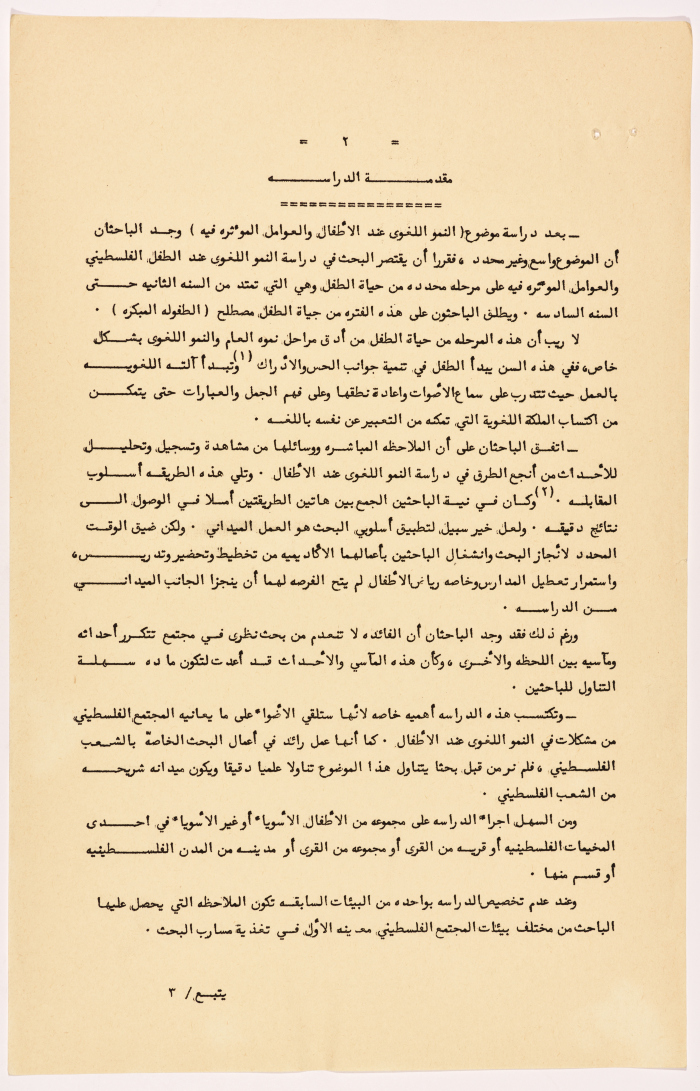 = ٢ =
مقدمة الدراسه
=================
ـ بعد دراسة موضوع ( النمو اللغوى عند الأطفال والعوامل الموءثره فيه ) وجد الباحثان
أن الموضوع واسع وغير محدد ، فقررا أن يقتصر البحث في دراسة النمو اللغوى عند الطفل الفلسطيني
والعوامل الموءثره فيه على مرحله محدده من حياة الطفل وهي التي تمتد من السنه الثانيه حتى
السنه السادسه ٠ ويطلق الباحثون على هذه الفتره من حياة الطفل مصطلح ( الطفوله المبكره ) ٠
لا ريب أن هذه المرحله من حياة الطفل من أدق مراحل نموه العام والنمو اللغوى بشكل
خاص، ففي هذه السن يبدأ الطفل في تنمية جوانب الحس والأدراك (١) وتبدأ آلته اللغويه
بالعمل حيث تتدرب على سماع الأصوات واعادة نطقها وعلى فهم الجمل والعبارات حتى يتمكن
من اكتساب الملكة اللغوية التي تمكنه من التعبير عن نفسه باللغه ٠
ـ اتفق الباحثان على أن الملاحظه المباشره ووسائلها من مشاهدة وتسجيل وتحليل
للأحداث من أنجع الطرق في دراسة النمو اللغوى عند الأطفال ٠ وتلي هذه الطريقه أسلوب
المقابله ٠(٢) وكان في نية الباحثين الجمع بين هاتين الطريقتين أملا في الوصول الى
نتائج دقيقه ٠ ولعل خير سبيل لتطبيق أسلوبي البحث هو العمل الميداني ٠ ولكن ضيق الوقت
المحدد لأنجاز البحث وانشغال الباحثين بأعمالهما الأكاديميه من تخطيط وتحضير وتدريس،
واستمرار تعطيل المدارس وخاصه رياض الأطفال لم يتح الفرصه لهما أن ينجزا الجانب الميداني
من الدراسه ٠
ورغم ذلك فقد وجد الباحثان أن الفائده لا تنعدم من بحث نظرى في مجتمع تتكرر أحداثه
ومآسيه بين اللحظه والأخرى ، وكأن هذه المآسي والأحداث قد أعدت لتكون ماده سهلة
التناول للباحثين ٠
ـ وتكتسب هذه الدراسه أهميه خاصه لأنها ستلقي الأضواء على ما يعانيه المجتمع الفلسطيني
من مشكلات في النمو اللغوى عند الأطفال ٠ كما أنها عمل رائد في أعمال البحث الخاصة بالشعب
الفلسطيني ، فلم نر من قبل بحثا يتناول هذا الموضوع تناولا علميا دقيقا ويكون ميدانه شريحه
من الشعب الفلسطيني ٠
ومن السهل اجراء الدراسه على مجموعه من الأطفال الأسوياء أو غير الأسوياء في احدى
المخيمات الفلسطينيه أو قريه من القرى أو مجموعه من القرى أو مدينه من المدن الفلسطينيه
أو قسم منها ٠
وعند عدم تخصيص الدراسه بواحده من البيئات السابقه تكون الملاحظه التي يحصل عليها
الباحث من مختلف بيئات المجتمع الفلسطيني معينه الأول في تغذية مسارب البحث ٠
يتبع / ٣